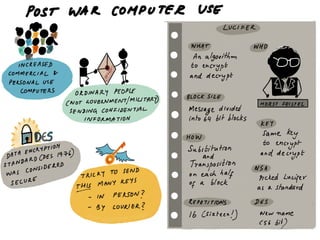 POST WAR COMPUTER USE
INCREASED
COMMERCIAL &
PERSONAL USE
COMPUTERS
ORDINARY PEOPLE
(NOT GOVERNMENT/MILITARY)
SENDING CONFIDENTIAL
INFORMATION
DES
DATA ENCRYPTION
STANDARD (DES 1976)
WAS CONSIDERED
SECURE
TRICKY TO SEND
THIS MANY KEYS
- IN PERSON?
- BY COURIER?
LUCIFER
WHAT
An algorithm
to encrypt
and decrypt
WHO
HORST FEISTEL
BLOCK SIZE
Message divided
into 64 bit blocks
KEY
Same key
to encrypt
and decrypt
HOW
Substitution
and
Transposition
on each half
of a block
NSA
Picked Lucifer
as a standard
REPETITIONS
16 (sixteen!)
DES
New name
(56 bit)